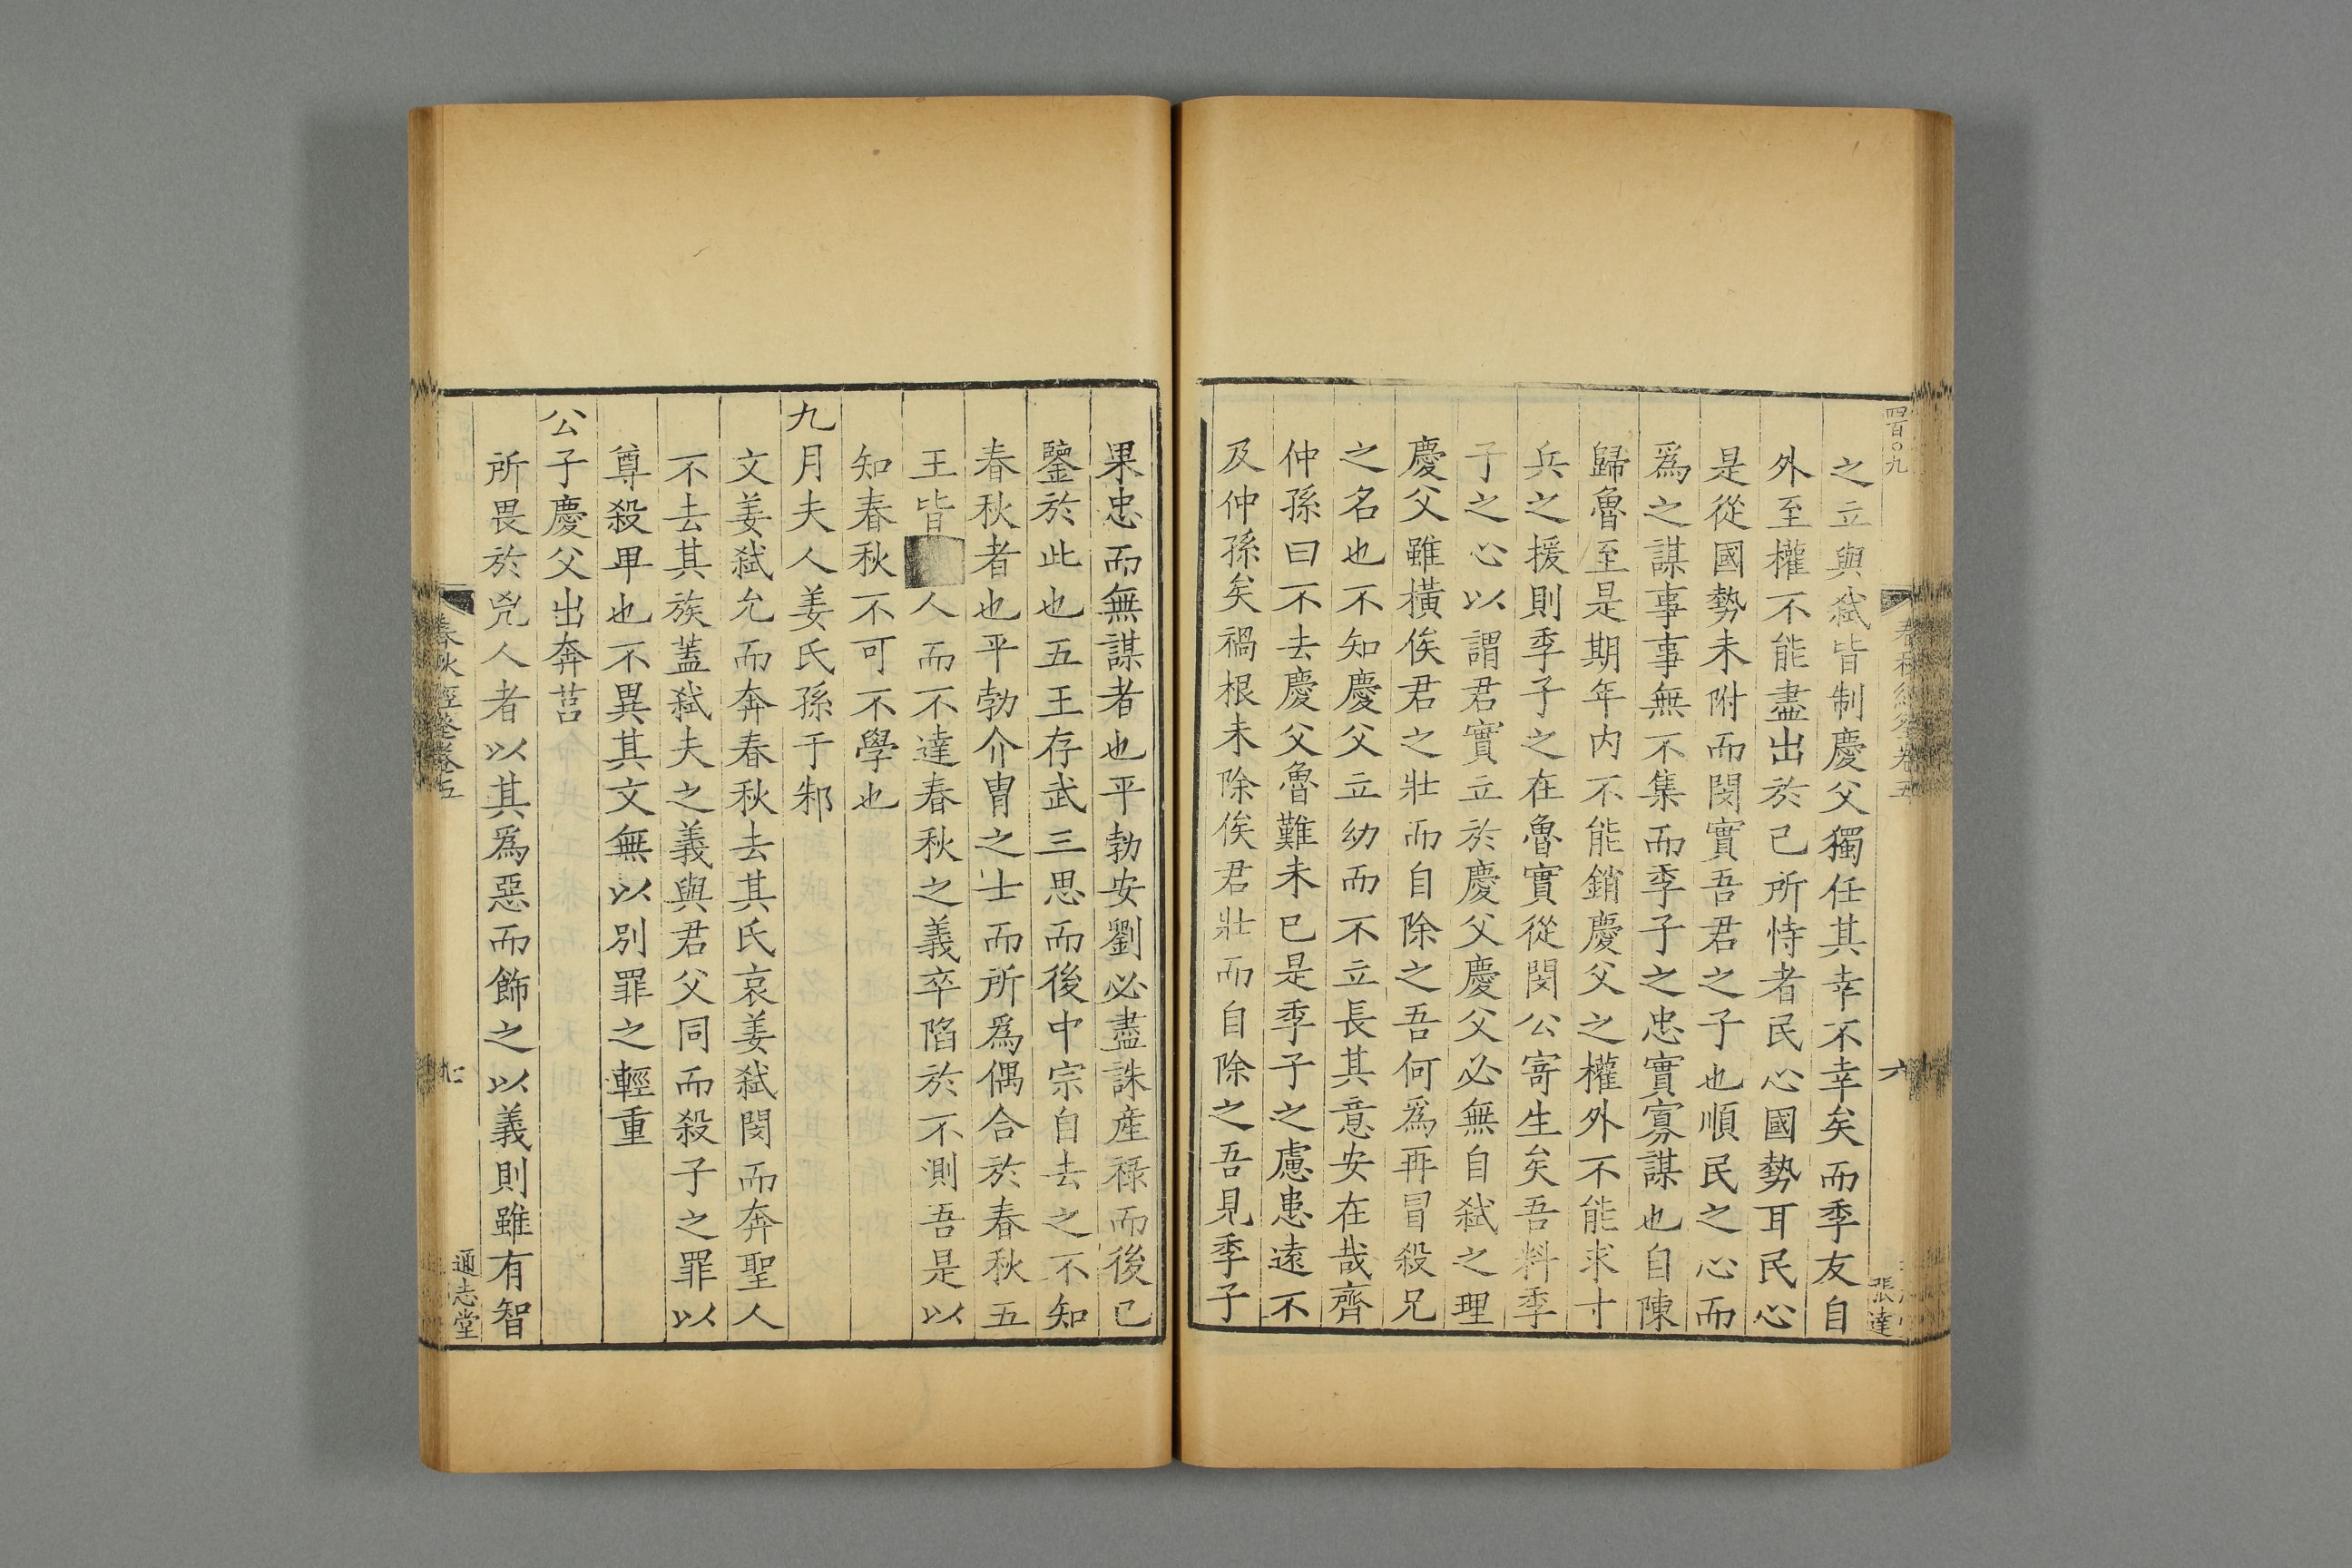 四百〇九
張達
之立與弑皆制慶父獨任其幸不幸矣而季友自
外至權不能盡出於己所恃者民心國勢耳民心
是從國勢未附而閔實吾君之子也順民之心而
爲之謀事事無不集而季子之忠實寡謀也自陳
歸魯至是期年内不能銷慶父之權外不能求寸
兵之援則季子之在魯實從閔公寄生矣吾料季
子之心以謂君實立於慶父慶父必無自弑之理
慶父雖横俟君之壯而自除之吾何爲再冒殺兄
之名也不知慶父立幼而不立長其意安在哉齊
仲孫曰不去慶父魯難未已是季子之慮患遠不
及仲孫矣禍根未除俟君壯而自除之吾見季子
果忠而無謀者也平勃安劉必盡誅産祿而後已
鑒於此也五王存武三思而後中宗自去之不知
春秋者也平勃介冑之士而所爲偶合於春秋五
王皆人而不達春秋之義卒陷於不測吾是以
知春秋不可不學也
九月夫人姜氏孫于邾
文姜弑允而奔春秋去其氏哀姜弑閔而奔聖人
不去其族蓋弑夫之義與君父同而殺子之罪以
尊殺卑也不異其文無以別罪之輕重
公子慶父出奔莒
所畏於兇人者以其爲惡而飾之以義則雖有智
春秋經筌卷五
通志堂